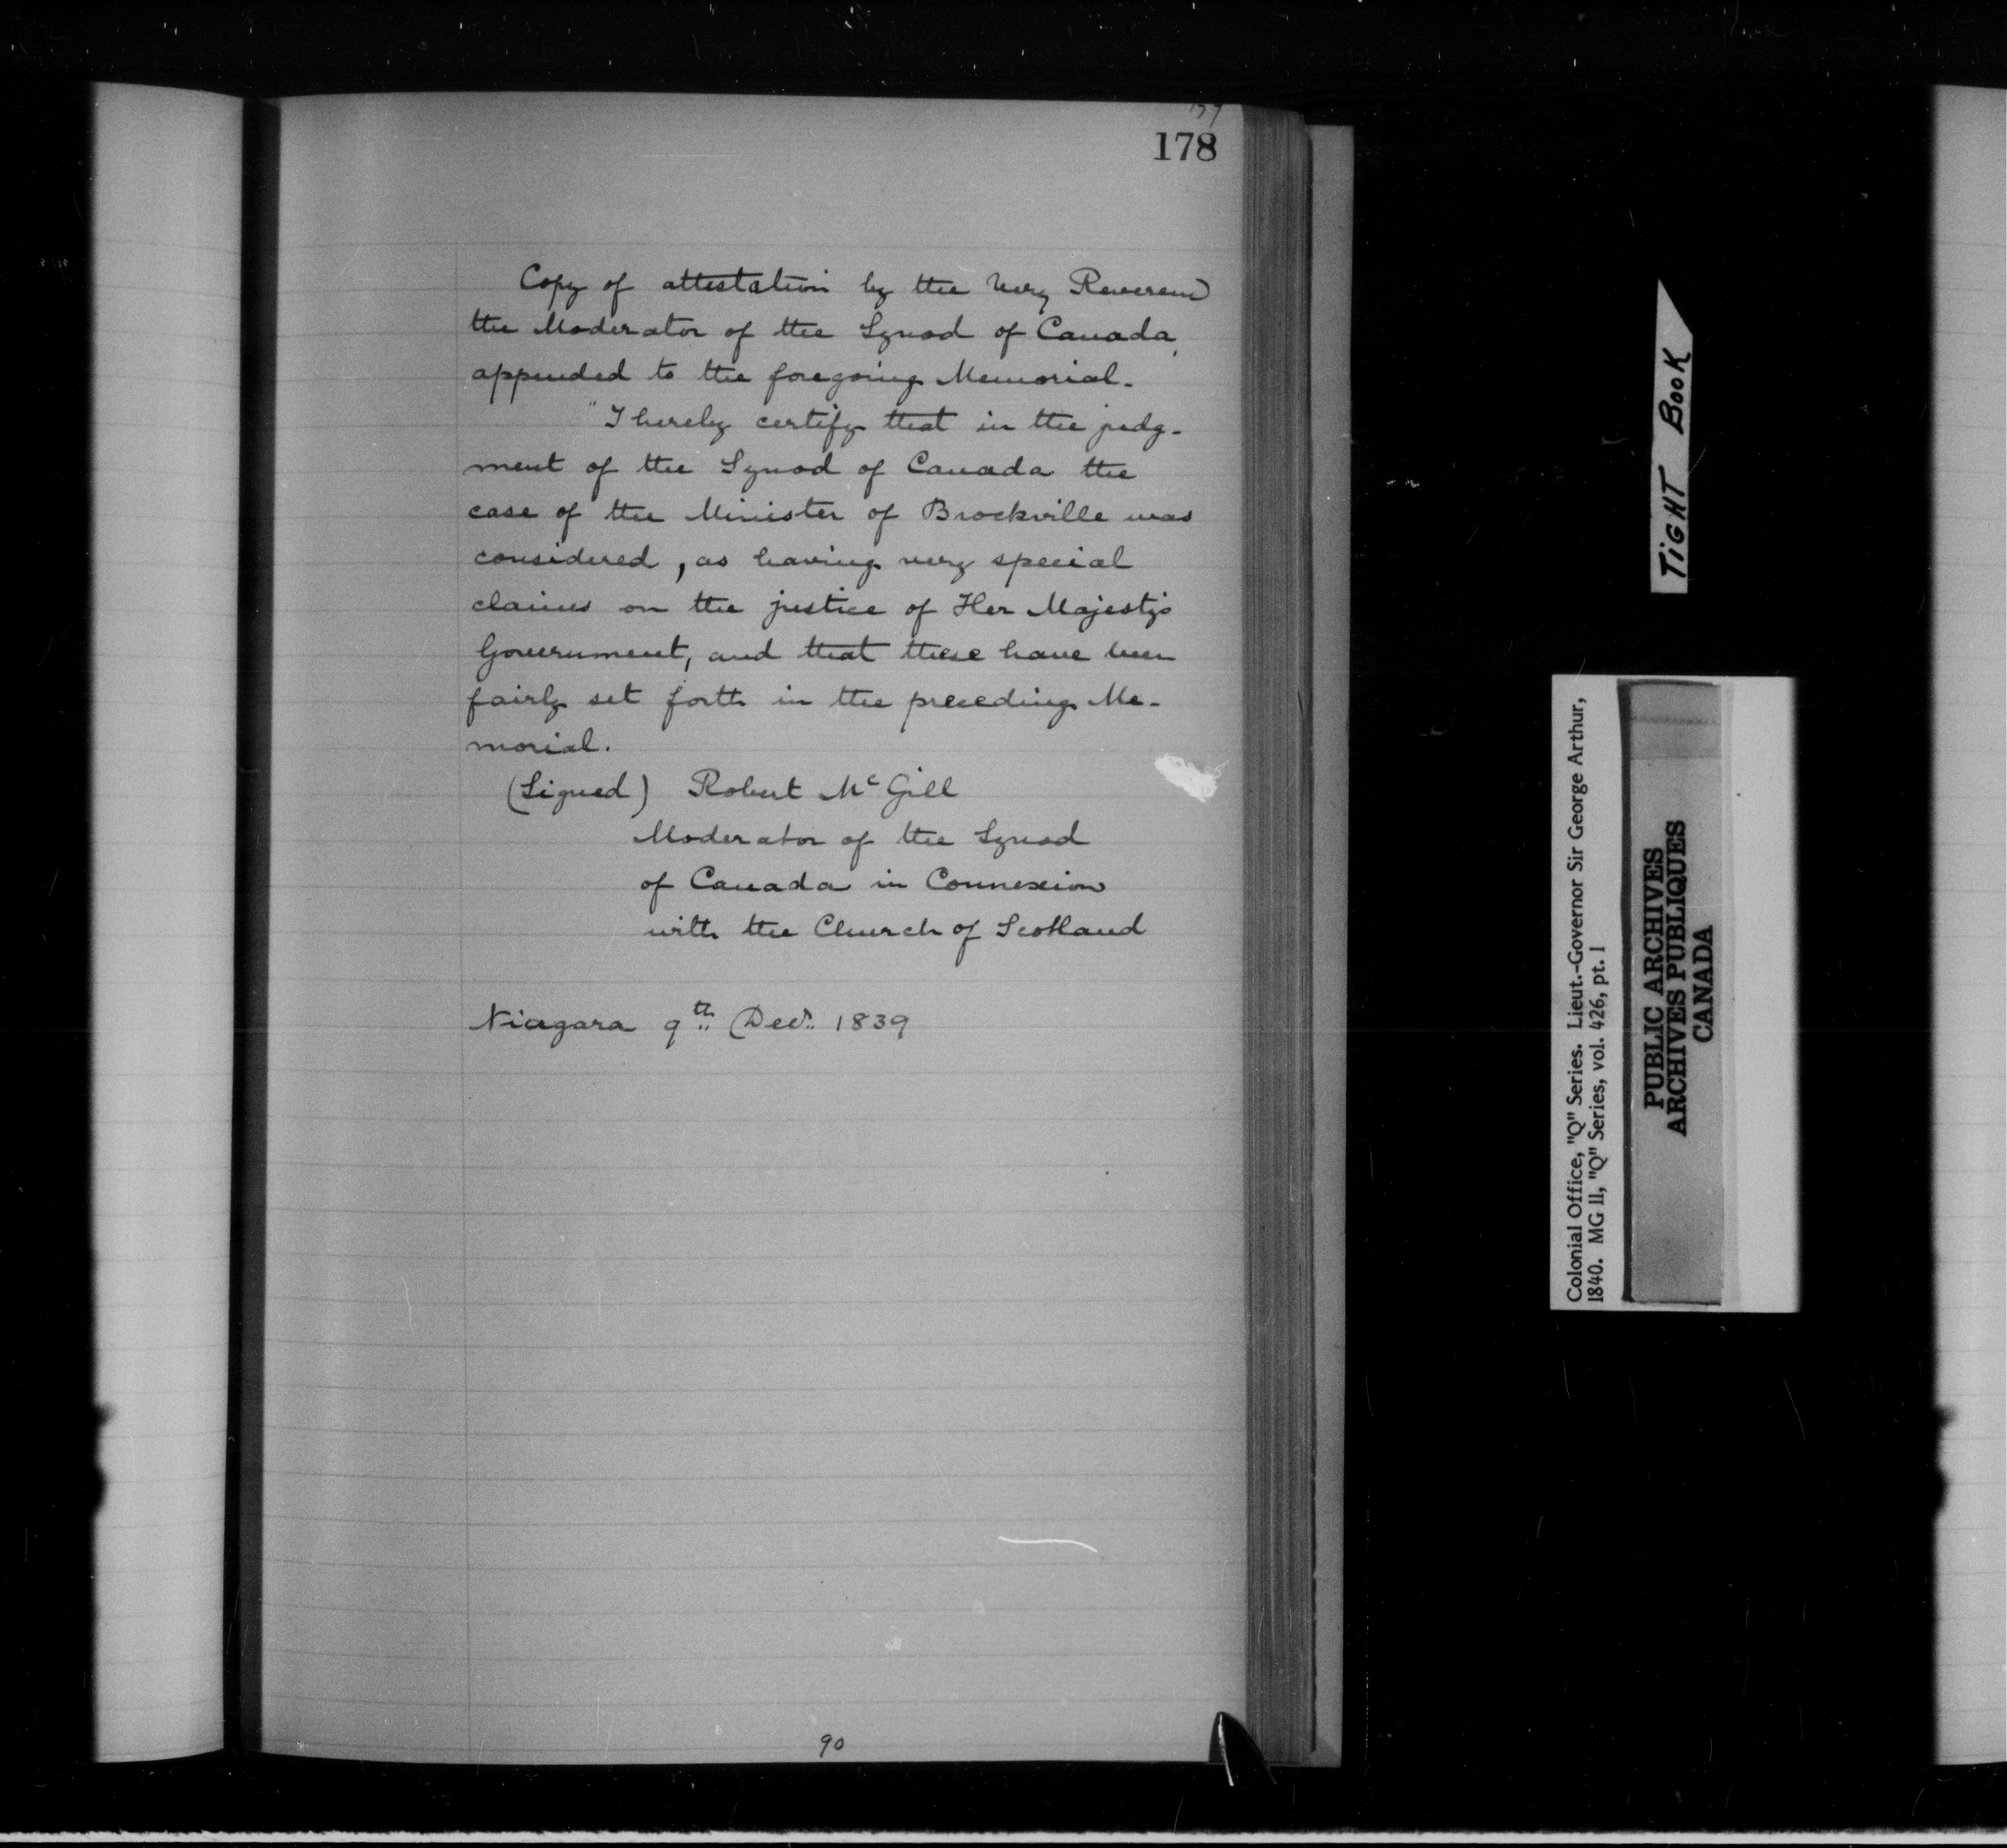 178
Copy of attestation by the Very Reverend
the Moderator of the Synod of Canada,
appended to the foregoing Memorial.
"I hereby certify that in the judg-
ment of the Synod of Canada the
case of the Minister of Brockville was
considered, as having very special
claims on the justice of Her Majesty's
Government, and that these have been
fairly set forth in the preceding Me-
morial.
(Signed) Robert McGill
Moderator of the Synod
of Canada in Connexion
with the Church of Scotland
Niagara 9th Decr. 1839
90
TIGHT BOOK
Colonial Office, "Q" Series. Lieut.-Governor Sir George Arthur,
1840. MG 11, "Q" Series, vol. 426, pt. 1
PUBLIC ARCHIVES
ARCHIVES PUBLIQUES
CANADA